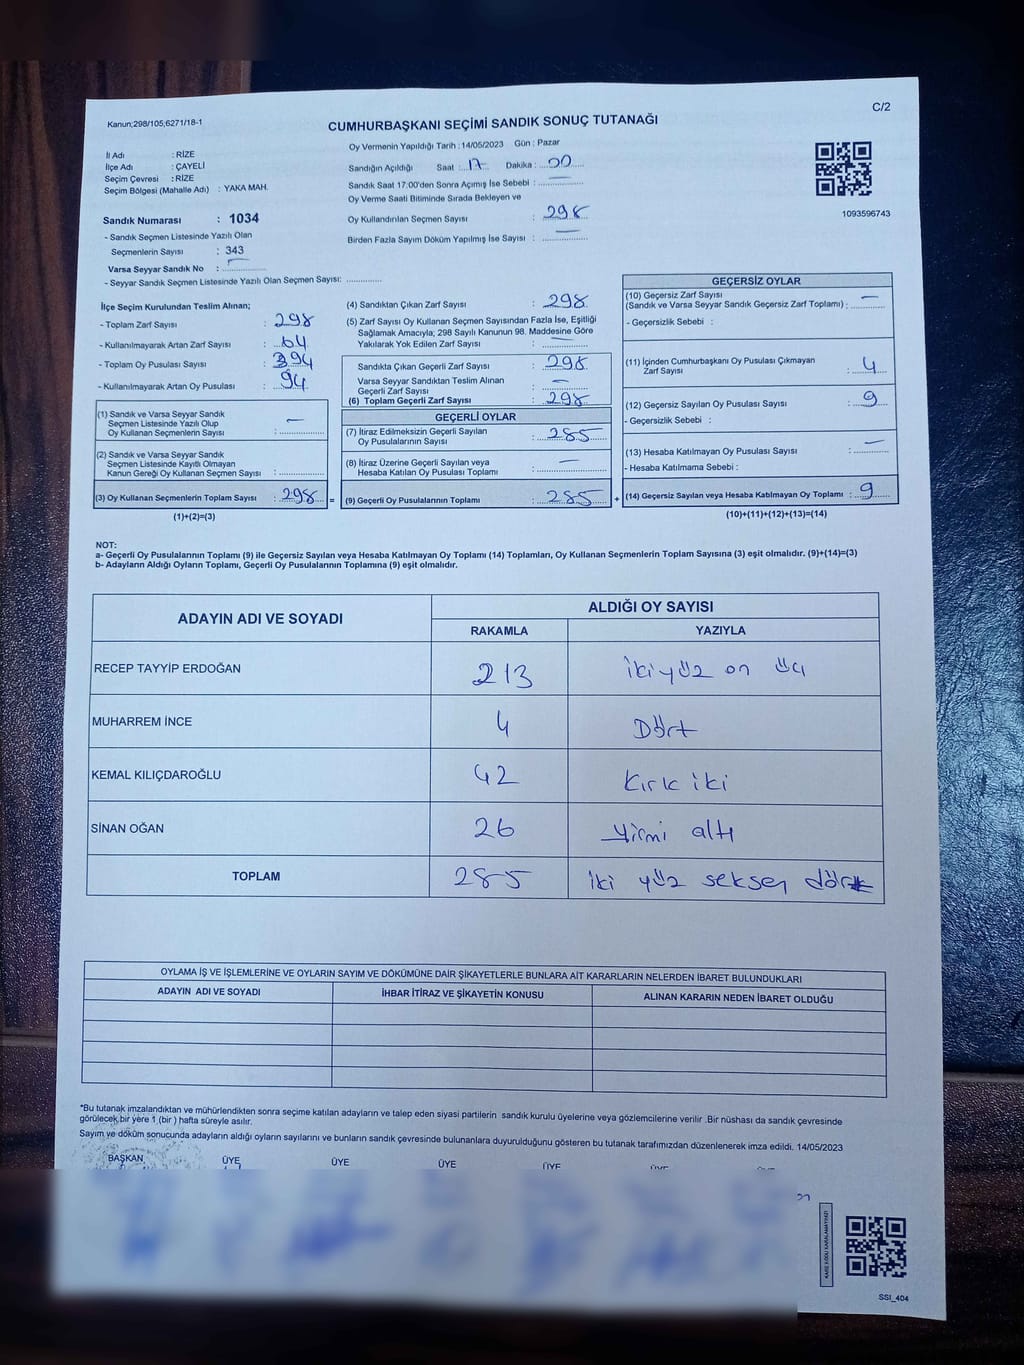 Kanun;298/105;6271/18-1
C/2
CUMHURBAŞKANI SEÇİMİ SANDIK SONUÇ TUTANAĞI
İl Adı : RİZE
İlçe Adı : ÇAYELİ
Seçim Çevresi : RİZE
Seçim Bölgesi (Mahalle Adı) : YAKA MAH.
Sandık Numarası : 1034
- Sandık Seçmen Listesinde Yazılı Olan
Seçmenlerin Sayısı : 343
Varsa Seyyar Sandık No : ............
- Seyyar Sandık Seçmen Listesinde Yazılı Olan Seçmen Sayısı: ............
Oy Vermenin Yapıldığı Tarih : 14/05/2023 Gün : Pazar
Sandığın Açıldığı Saat : 17 Dakika : 00
Sandık Saat 17:00'den Sonra Açmış İse Sebebi : —
Oy Verme Saati Bitiminde Sırada Bekleyen ve
Oy Kullandırılan Seçmen Sayısı : 298
Birden Fazla Sayım Döküm Yapılmış İse Sayısı : —
1093596743
İlçe Seçim Kurulundan Teslim Alınan;
- Toplam Zarf Sayısı : 298
- Kullanılmayarak Artan Zarf Sayısı : 64
- Toplam Oy Pusulası Sayısı : 394
- Kullanılmayarak Artan Oy Pusulası : 94
(1) Sandık ve Varsa Seyyar Sandık
Seçmen Listesinde Yazılı Olup
Oy Kullanan Seçmenlerin Sayısı : —
(2) Sandık ve Varsa Seyyar Sandık
Seçmen Listesinde Kayıtlı Olmayan
Kanun Gereği Oy Kullanan Seçmen Sayısı : ............
(3) Oy Kullanan Seçmenlerin Toplam Sayısı : 298 =
(1)+(2)=(3)
(4) Sandıktan Çıkan Zarf Sayısı : 298
(5) Zarf Sayısı Oy Kullanan Seçmen Sayısından Fazla İse, Eşitliği
Sağlamak Amacıyla; 298 Sayılı Kanunun 98. Maddesine Göre
Yakılarak Yok Edilen Zarf Sayısı : —
Sandıkta Çıkan Geçerli Zarf Sayısı : 298
Varsa Seyyar Sandıktan Teslim Alınan
Geçerli Zarf Sayısı : —
(6) Toplam Geçerli Zarf Sayısı : 298
GEÇERLİ OYLAR
(7) İtiraz Edilmeksizin Geçerli Sayılan
Oy Pusulalarının Sayısı : 285
(8) İtiraz Üzerine Geçerli Sayılan veya
Hesaba Katılan Oy Pusulası Toplamı : —
(9) Geçerli Oy Pusulalarının Toplamı : 285 +
GEÇERSİZ OYLAR
(10) Geçersiz Zarf Sayısı
(Sandık ve Varsa Seyyar Sandık Geçersiz Zarf Toplamı) : —
- Geçersizlik Sebebi :
(11) İçinden Cumhurbaşkanı Oy Pusulası Çıkmayan
Zarf Sayısı : 4
(12) Geçersiz Sayılan Oy Pusulası Sayısı : 9
- Geçersizlik Sebebi :
(13) Hesaba Katılmayan Oy Pusulası Sayısı : —
- Hesaba Katılmama Sebebi :
(14) Geçersiz Sayılan veya Hesaba Katılmayan Oy Toplamı : 9
(10)+(11)+(12)+(13)=(14)
NOT:
a- Geçerli Oy Pusulalarının Toplamı (9) ile Geçersiz Sayılan veya Hesaba Katılmayan Oy Toplamı (14) Toplamları, Oy Kullanan Seçmenlerin Toplam Sayısına (3) eşit olmalıdır. (9)+(14)=(3)
b- Adayların Aldığı Oyların Toplamı, Geçerli Oy Pusulalarının Toplamına (9) eşit olmalıdır.
ADAYIN ADI VE SOYADI ALDIĞI OY SAYISI
RAKAMLA YAZIYLA
RECEP TAYYİP ERDOĞAN 213 İkiyüz on üç
MUHARREM İNCE 4 Dört
KEMAL KILIÇDAROĞLU 42 Kırk iki
SİNAN OĞAN 26 Yirmi altı
TOPLAM 285 iki yüz seksen
OYLAMA İŞ VE İŞLEMLERİNE VE OYLARIN SAYIM VE DÖKÜMÜNE DAİR ŞİKAYETLERLE BUNLARA AİT KARARLARIN NELERDEN İBARET BULUNDUKLARI
ADAYIN ADI VE SOYADI İHBAR İTİRAZ VE ŞİKAYETİN KONUSU ALINAN KARARIN NEDEN İBARET OLDUĞU
*Bu tutanak imzalandıktan ve mühürlendikten sonra seçime katılan adayların ve talep eden siyasi partilerin sandık kurulu üyelerine veya gözlemcilerine verilir .Bir nüshası da sandık çevresinde
görülecek bir yere 1 (bir ) hafta süreyle asılır.
Sayım ve döküm sonucunda adayların aldığı oyların sayılarını ve bunların sandık çevresinde bulunanlara duyurulduğunu gösteren bu tutanak tarafımızdan düzenlenerek imza edildi. 14/05/2023
BAŞKAN ÜYE ÜYE ÜYE ÜYE
KARE KODU KARALAMAYINIZ!
SSI_404